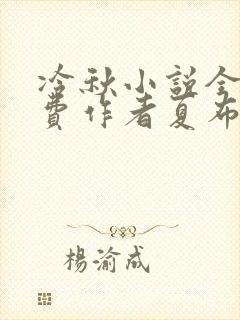 冷秋小説全
費作者夏布
楊渝成